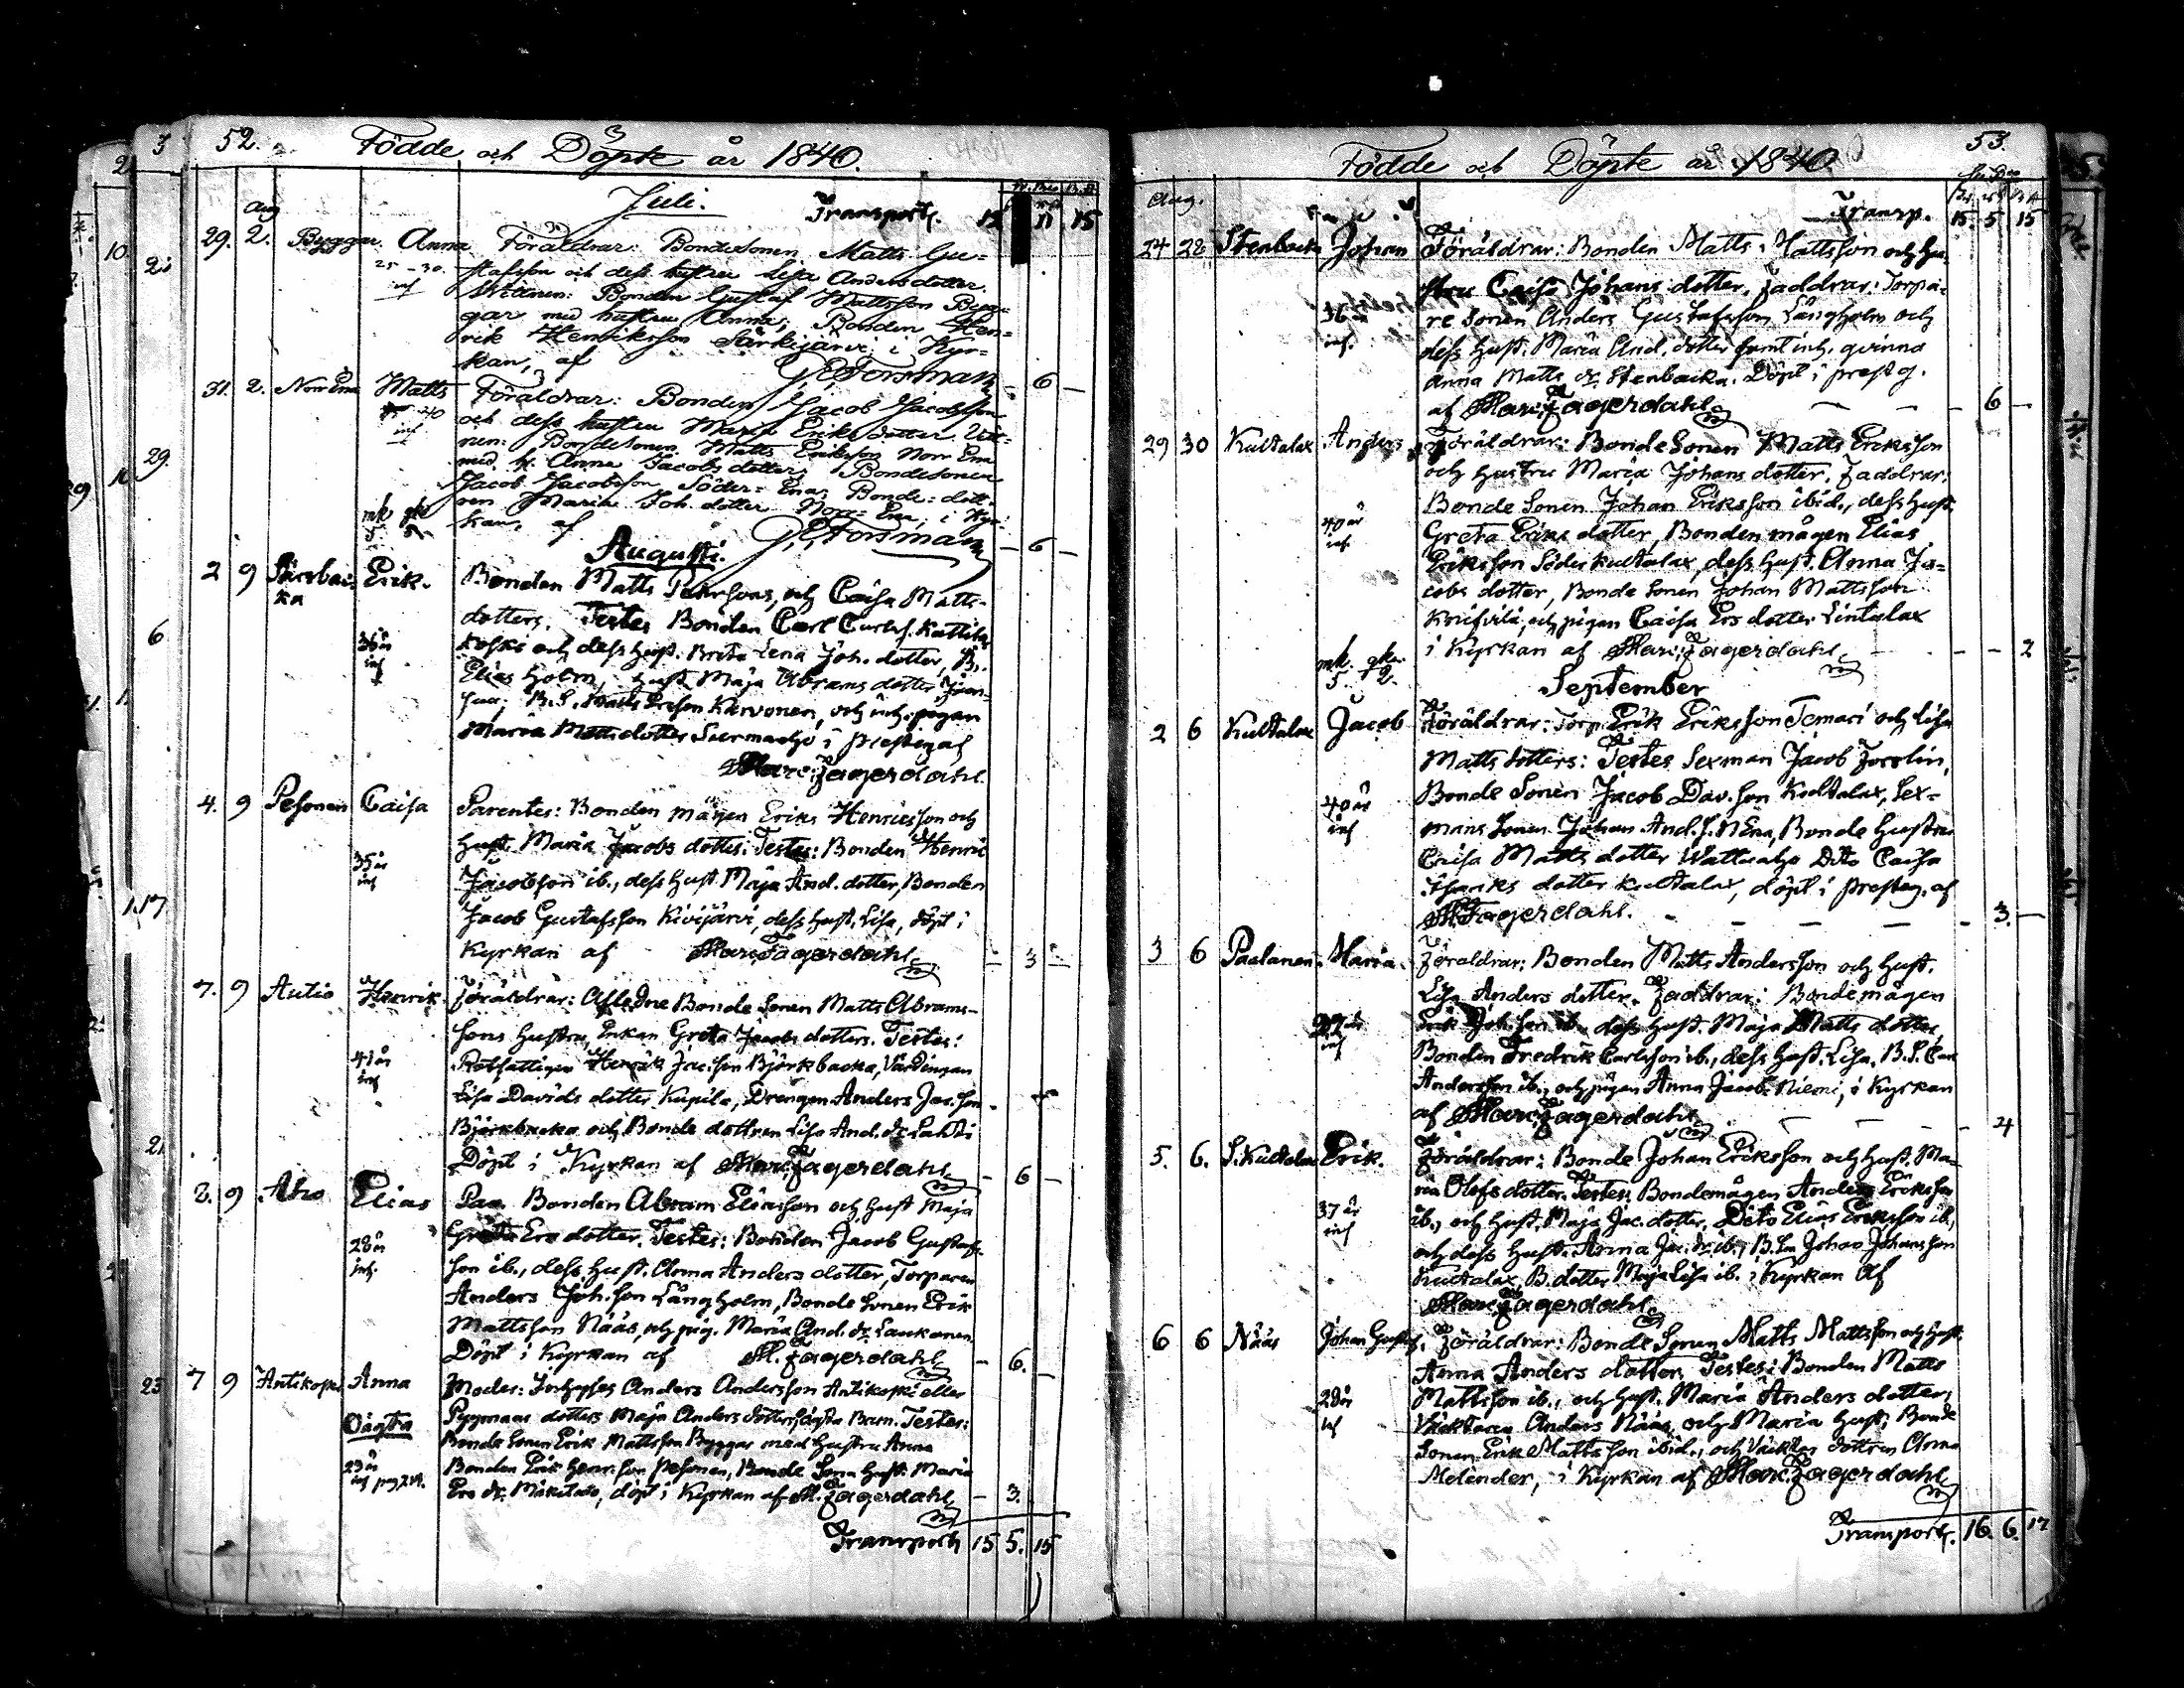 52.
Födde och Döpte år 1840.
Juli.
Transport. 15 11 15
Aug
29. 2. Byggar Anna Föräldrar: Bondesonen Matts Gu=
25-30. stafsson och dess hustru Lisa Andersdotter.
inf Vittnen: Bonden Gustaf Mattsson Byg=
gar med hustru Anna; Bonden Hen=
rik Henriksson Särkijärvi i Kyr=
kan, af G. E. Forsman - 6 -
31. 2. Norr Ena Matts Föräldrar: Bonden Jacob Jacobsson
40 och dess hustru Maria Eriksdotter Vitt=
inf nen: Bondesonen Matts Eriksson Norr Ena
med h. Anna Jacobsdotter; Bondesonen
Jacob Jacobsson Söder=Ena; Bonde=dott=
ren Maria Joh. dotter Norr=Ena; i Kyr=
mk gk 5 5 kan, af G. E. Forsman - 6 -
Augusti.
2 9 Erik. Bonden Matts Pehrsons, och Caisa Matts-
ka dotters. Testes Bonden Carl Carls s. Kattila
36 år koski och dess hust. Brita Lena Joh. dotter, B.
inf Elias Holm, hust Maja Abrams dotter
B. S. Matts Ersson Karvonen, och inh. pigan
Maria Mattsdotter i prestg af
Marc. Fagerdahl.
4. 9 Pesonen Caisa Parentes: Bonden mågen Eriks Henricsson och
Hust. Maria Jacobs dotter. Testes: Bonden Henric
35 år Jacobsson ib., dess hust. Maja And. dotter, Bonden
inf Jacob Gustafsson Kivijärvi, dess hust. Lisa, döpt i
Kyrkan af Marc. Fagerdahl - 3 -
7. 9 Autio Henrik Föräldrar: Aflidne Bonde Sonen Matts Abrams-
sons Hustru, Enkan Greta Jacobs dotters. Testes:
41 år Rotfattigen Henrik Jac. son Björkbacka, Värdinnan
inf Lisa Davids dotter Kupila, Drengen Anders Jac. son
Björkbacka och Bonde dottren Lisa And. dr Lahti
Döpt i Kyrkan af Marc. Fagerdahl - 6 -
8. 9 Aho Elias Par. Bonden Abram Eliasson och hust Maja
Greta Ers dotter. Testes: Bonden Jacob Gustafs-
28 år son ib., dess hust. Anna Anders dotter, Torparen
inf. Anders Joh. son Långholm, Bonde Sonen Erik
Mattsson Nääs, och pig. Maria And. dr Laukonen
Döpt i Kyrkan af M. Fagerdahl - 6. -
7 9 Antikoski Anna Moder: Inhyses Anders Andersson Antikoski eller
Oägta dotters Maja Anders dotters oägta Barn. Testes:
Bonde Sonen Erik Mattsson Byggar med Hustru Anna
29 år Bonden Erik Henr. son Pesonen, Bonde Sons hust. Maria
inf Ers dr. döpt i Kyrkan af M. Fagerdahl - 3.
Transport 15 5. 15
53.
Födde och Döpte år 1840.
Aug.
Transp. 15. 5 15
24 28 Stenbacka Johan Föräldrar: Bonden Matts Mattsson och Hu-
stru Caisa Johans dotter, Faddrar: Torpa-
36 år re Sonen Anders Gustafsson Långholm och
inf. dess Hust: Maria And. dotter samt inh. qvinna
Anna Matts dr Stenbacka. Döpt i prestg.
af Marc. Fagerdahl - 6 -
29 30 Kultalax Anders Föräldrar: Bonde Sonen Matts Eriksson
och Hustru Maria Johans dotter, Faddrar:
Bonde Sonen Johan Eriksson ibid., dess hust.
40 år Greta Eriks dotter, Bonden mågen Elias
inf. Eriksson Söderkultalax, dess hust. Anna Ja-
cobs dotter, Bonde Sonen Johan Mattsson
och pigan Caisa Ers dotter Lintulax
mk. gk. 5. 2. i Kyrkan af Marc. Fagerdahl - - 2
September
2 6 Kultalax Jacob Föräldrar: Torp. Erik Eriksson Tomari och Lisa
Matts dotters: Testes Sexman Jacob Forslin,
40 år Bonde Sonen Jacob Dav. son Kultalax, Sex-
inf mans Sonen Johan And. s. N Ena, Bonde Hustru
Caisa Matts dotter Wattuaho Dito Caisa
dotter Kultalax, döpt i prestg. af
M. Fagerdahl. - 3. -
3 6 Paalanen Maria Föräldrar: Bonden Matts Andersson och Hust.
Lisa Anders dotter. Faddrar: Bondemågen
Erik Joh. son ib. dess hust. Maja Matts dotter,
inf Bonden Fredrik Carlsson ib., dess hust. Lisa, B. S. Carl
Andersson ib., och pigan Anna Jacob. Niemi, i Kyrkan
af Marc. Fagerdahl - 4
5. 6. S. Kultalax Erik. Föräldrar: Bonde Johan Eriksson och hust. Ma-
ria Olofs dotter. Testes: Bondemågen Anders Eriksson
37 år ib., och hust. Maja Jac. dotter, Dito Elias Eriksson ib.,
inf och dess hust. Anna Jac. dr. ib., B. Son Johan Johansson
Kultalax, B. dotter Maja Lisa ib. i Kyrkan af
Marc. Fagerdahl
6 6 Nääs Johan Gustaf. Föräldrar: Bonde Sonen Matts Mattsson och hust.
Anna Anders dotter, Testes: Bonden Matts
28 år Mattsson ib., och hust. Maria Anders dotter,
inf Väktaren Anders Nääs, och Maria hust: Bonde
Sonen Erik Mattsson ibid., och Väktar dottren Anna
Melender, i Kyrkan af Marc. Fagerdahl
Transport. 16. 6. 17